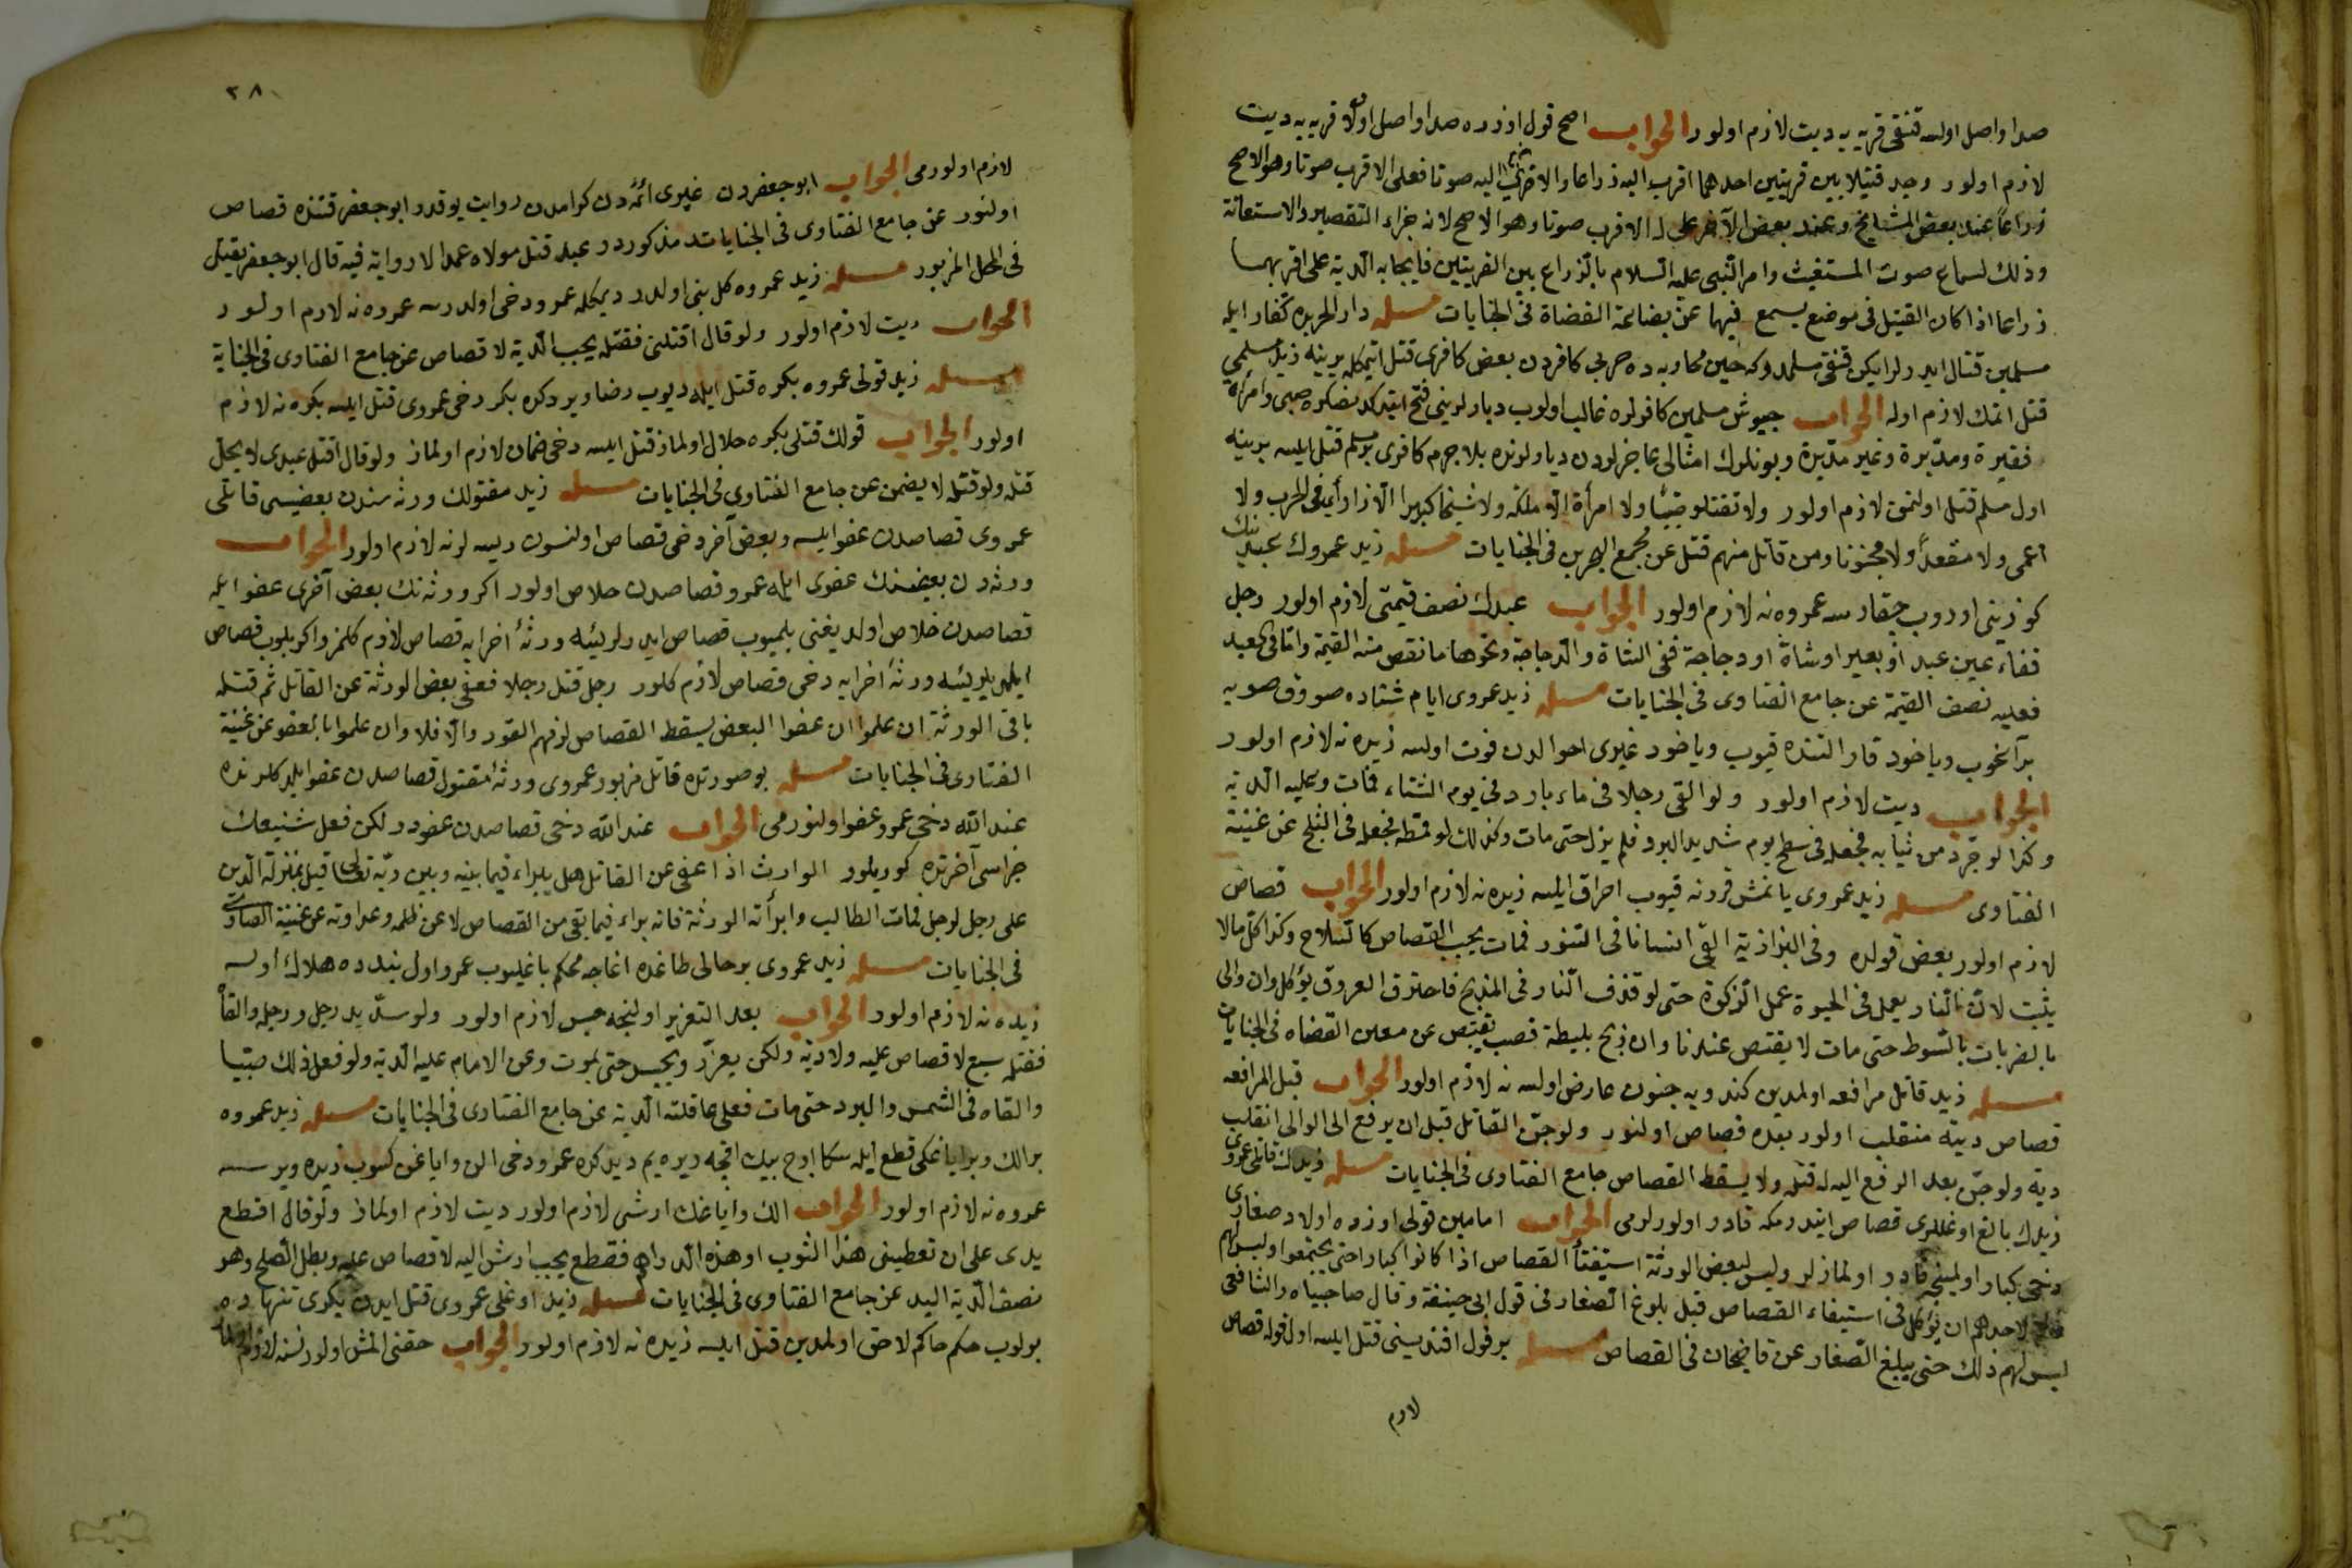 صدا واصل اولسه قنغی قریه یه دیت لازم اولور الجواب اصح قول اوزره صدا واصل اولان قریه یه دیت
لازم اولور وجد قتیلا بین قریتین احدهما اقرب الیه ذراعا والاخری الیه صوتا فعلی الاقرب صوتا وهو الاصح
ذراعا عند بعض المشایخ وعند بعض الآخر علی الاقرب صوتا وهو الاصح لانه جزاء التقصیر والاستعانة
وذلك لسماع صوت المستغیث وامر النبی علیه السلام بالذراع بین القریتین فایجابه الدیة علی اقربهما
ذراعا اذا كان القتیل فی موضع یسمع فیها عن بضاعة القضاة فی الجنایات مسئله دار الحربده كفار ایله
مسلمین قتال ایدرلر ایكن قنغی مسلمدركه حین محاربه ده حربی كافردن بعض كافری قتل اتیمكله یرینه زید مسلمی
قتل اتمك لازم اوله الجواب جیوش مسلمین كافرلره غالب اولوب دیارلرینی فتح ایتدكدنصكره صبی وامرأة
فقیرة ومدبرة وغیر مدبرة وبونلرك امثالی عاجزلردن دیارلرنده بلا جرم كافری بر مسلم قتل ایلسه یرینه
اول مسلم قتل اولنمق لازم اولور ولا تقتلو صبیا ولا امرأة الا ملكة ولا شیخا كبیرا الا ذا رأی فی الحرب ولا
اعمی ولا مقعدا ولا مجنونا ومن قاتل منهم قتل عن مجمع البحرین فی الجنایات مسئله زید عمروك عبدینك
كوزینی اوروب چقارسه عمروه نه لازم اولور الجواب عبدك نصف قیمتی لازم اولور رجل
فقاء عین عبد او بعیر او شاة او دجاجة ففی الشاة والدجاجة ونحوها ما نقص من القیمة واما فی العبد
فعلیه نصف القیمة عن جامع الفتاوی فی الجنایات مسئله زید عمروی ایام شتاده صووق صویه
براغوب ویاخود قار النده قیوب ویاخود غیری احوالدن فوت اولسه زیده نه لازم اولور
الجواب دیت لازم اولور ولو القی رجلا فی ماء بارد فی یوم الشتاء فمات وعلیه الدیة
وكذا لو جرد من ثیابه فجعله فی سطح یوم شدید البرد فلم یزل حتی مات وكذلك لو قمطه فجعله فی الثلج عن غنیة
الفتاوی مسئله زید عمروی یانمش فرونه قیوب احراق ایلسه زیده نه لازم اولور الجواب قصاص
لازم اولور بعض قولده وفی البزازیة القی انسانا فی التنور فمات یجب القصاص كالسلاح وكذا كل مالا
یثبت لان النار یعمل فی الحیوة عمل الذكوة حتی لو قذف النار فی المذبح فاحترق العروق یؤكل وان والی
بالضربات بالسوط حتی مات لا یقتص عندنا وان ذبح بلیطة قصب یقتص عن معین القضاه فی الجنایات
مسئله زید قاتل مرافعه اولمدین كندویه جنون عارض اولسه نه لازم اولور الجواب قبل المرافعه
قصاص دیته منقلب اولور بعده قصاص اولنور ولو جن القاتل قبل ان یرفع الی الوالی انقلب
دیة ولو جن بعد الرفع الیه له قتله ولا یسقط القصاص جامع الفتاوی فی الجنایات مسئله زیدك قاتلی عمروی
زیدك بالغ اوغللری قصاص ایتدرمكه قادر اولورلرمی الجواب امامین قولی اوزره اولاد صغاری
دخی كبار اولمینجه قادر اولمازلر ولیس لبعض الورثة استیفاء القصاص اذا كانوا كبارا حتی یجتمعوا ولیس لهم
لاحدهم ان یؤكل فی استیفاء القصاص قبل بلوغ الصغار فی قول ابی حنیفة وقال صاحبیناه والشافعی
لیس لهم ذلك حتی یبلغ الصغار عن قاضیخان فی القصاص مسئله بر قول افندیسنی قتل ایلسه اول قوله قصاص
لازم
٣٨
لازم اولورمی الجواب ابو جعفردن غیری ائمهٔ دن كرامدن روایت یوقدر ابو جعفر قتنده قصاص
اولنور عن جامع الفتاوی فی الجنایات مذكوردر عبد قتل مولاه عمدا لا روایة فیه قال ابو جعفر یقتل
فی المحل المزبور مسئله زید عمروه كل بنی اولدر دیمكله عمرو دخی اولدرسه عمروه نه لازم اولور
الجواب دیت لازم اولور ولو قال اقتلنی فقتله یجب الدیة لا قصاص عن جامع الفتاوی فی الجنایة
مسئله زید قولی عمروه بكره قتل ایله دیوب رضا ویردكده بكر دخی عمروی قتل ایلسه بكره نه لازم
اولور الجواب قولك قتلی بكره حلال اولماز قتل ایلسه دخی ضمان لازم اولماز ولو قال اقتل عبدی لا یحل
قتله ولو قتله لا یضمن عن جامع الفتاوی فی الجنایات مسئله زید مقتولك ورثه سندن بعضیسی قاتلی
عمروی قصاصدن عفو ایلسه وبعض آخر دخی قصاص اولنسون دیسه لر نه لازم اولور الجواب
ورثه دن بعضنك عفوی ایله عمرو قصاصدن خلاص اولور اكر ورثه نك بعض آخری عفو ایله
قصاصدن خلاص اولدیغنی بلمیوب قصاص ایدرلر ینه ورثهٔ اخرایه قصاص لازم كلمز واكر بلوب قصاص
ایلدیلر ینه ورثهٔ اخرایه دخی قصاص لازم كلور رجل قتل رجلا فعفی بعض الورثة عن القاتل ثم قتله
باقی الورثة ان علموا ان عفوا البعض یسقط القصاص لزمهم القود والا فلا وان علموا بالعفو عن غنیة
الفتاوی فی الجنایات مسئله بو صورتده قاتل مزبور عمروی ورثهٔ مقتول قصاصدن عفو ایلدكلرنده
عند الله دخی عمرو عفو اولنورمی الجواب عند الله دخی قصاصدن عفودر لكن فعل شنیعك
جزاسی آخرتده كوریلور الوارث اذا عفی عن القاتل هل یبراء فیما بینه وبین ربه تعالی قیل بمنزلة الدین
علی رجل لرجل فمات الطالب وابرأته الورثة فانه یبراء فیما بقی من القصاص لا عن ظلمه وعداوته عن غنیة الفتاوی
فی الجنایات مسئله زید عمروی بر حالی طاغده اغاجه محكم باغلیوب عمرو اول بندده هلاك اولسه
زیده نه لازم اولور الجواب بعد التعزیر اولنجه حبس لازم اولور ولو سد ید رجل ورجله والقاه
فقتله سبع لا قصاص علیه ولا دیة ولكن یعزر ویحبس حتی یموت وعن الامام علیه الدیة ولو فعل ذلك صبیا
والقاه فی الشمس والبرد حتی مات فعلی عاقلته الدیة عن جامع الفتاوی فی الجنایات مسئله زید عمروه
بر الك وبر ایاغكی قطع ایله سكا اوچ بیك اقچه ویره یم دیدكده عمرو دخی الن وایاغن كسوب زیده ویرسه
عمروه نه لازم اولور الجواب الك وایاغك ارشی لازم اولور دیت لازم اولماز ولو قال اقطع
یدی علی ان تعطینی هذا الثوب او هذه الدراهم فقطع یجب ارش الید لا قصاص علیه وبطل الصلح وهو
نصف الدیة الید عن جامع الفتاوی فی الجنایات مسئله زید اوغلی عمروی قتل ایدن بكری تنهاده
بولوب حكم حاكم لاحق اولمدین قتل ایلسه زیده نه لازم اولور الجواب حقنی المش اولور نسنه لازم اولماز